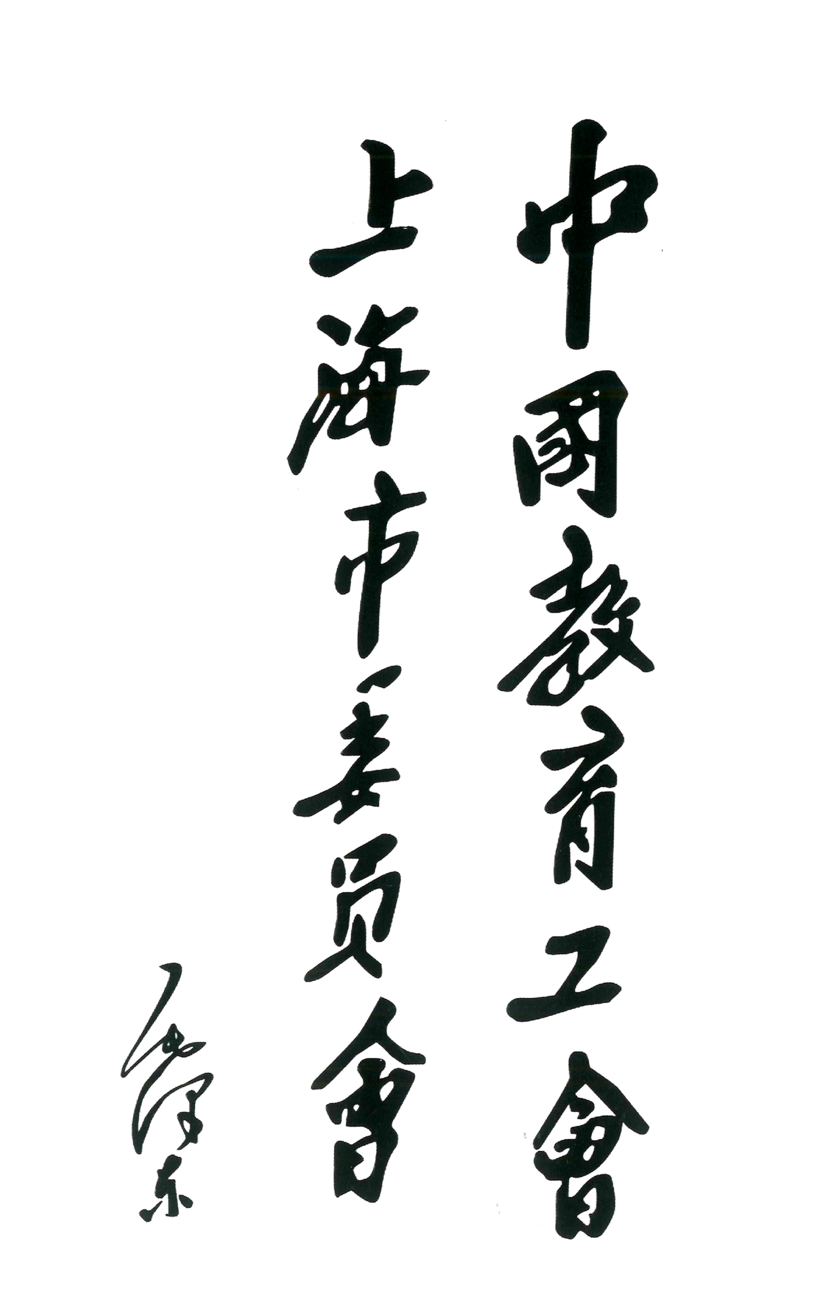 中國教育工會
上海市委员會
毛泽东